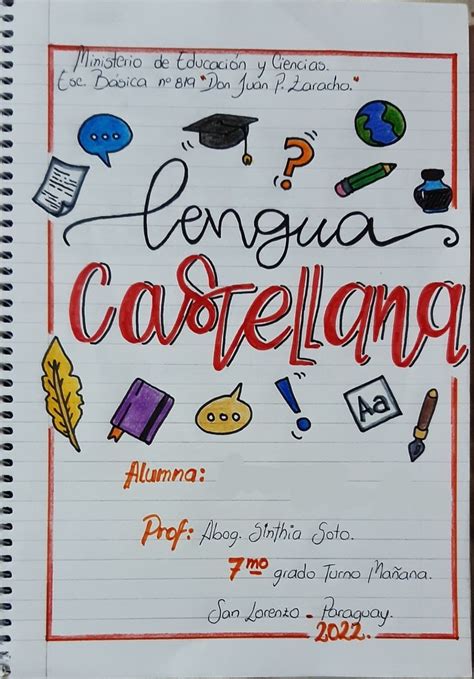 Ministerio de Educación y Ciencias.
Esc. Básica nº 819 "Don Juan P. Zaracho."
Lengua
Castellana
Aa
Alumna:
Prof: Abog. Sinthia Soto.
7mo grado Turno Mañana.
San Lorenzo - Paraguay.
2022.